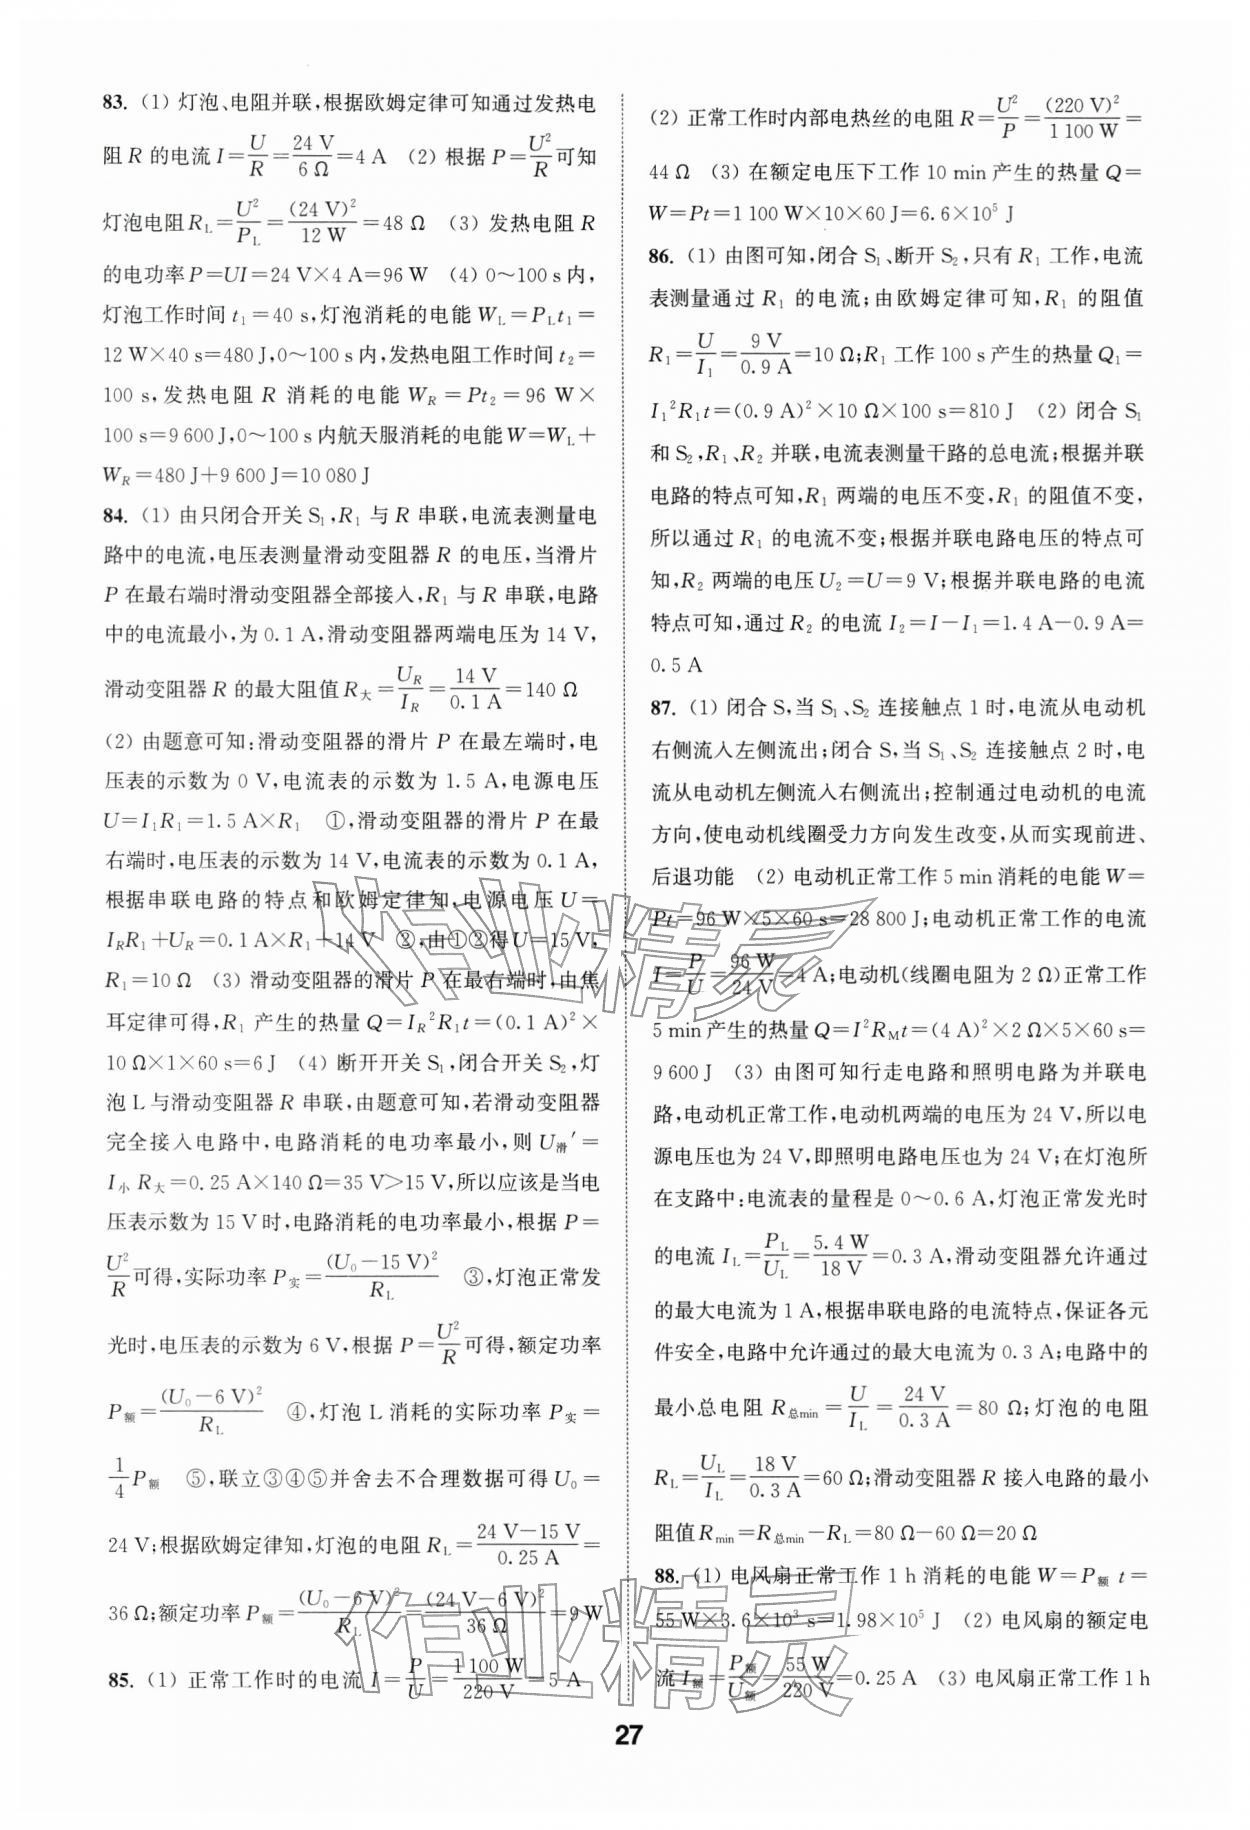 83. (1) 灯泡、电阻并联,根据欧姆定律可知通过发热电
阻 R 的电流 I=U/R=24 V/6 Ω=4 A (2) 根据 P=U²/R可知
灯泡电阻 R_L=U²/P_L=(24 V)²/12 W=48 Ω (3) 发热电阻 R
的电功率 P=UI=24 V×4 A=96 W (4) 0～100 s 内,
灯泡工作时间 t₁=40 s,灯泡消耗的电能 W_L=P_Lt₁=
12 W×40 s=480 J,0～100 s 内,发热电阻工作时间 t₂=
100 s,发热电阻 R 消耗的电能 W_R=Pt₂=96 W×
100 s=9 600 J,0～100 s 内航天服消耗的电能 W=W_L+
W_R=480 J+9 600 J=10 080 J
84. (1) 由只闭合开关 S₁,R₁ 与 R 串联,电流表测量电
路中的电流,电压表测量滑动变阻器 R 的电压,当滑片
P 在最右端时滑动变阻器全部接入,R₁ 与 R 串联,电路
中的电流最小,为 0.1 A,滑动变阻器两端电压为 14 V,
滑动变阻器 R 的最大阻值 R大=U_R/I_R=14 V/0.1 A=140 Ω
(2) 由题意可知:滑动变阻器的滑片 P 在最左端时,电
压表的示数为 0 V,电流表的示数为 1.5 A,电源电压
U=I₁R₁=1.5 A×R₁ ①,滑动变阻器的滑片 P 在最
右端时,电压表的示数为 14 V,电流表的示数为 0.1 A,
根据串联电路的特点和欧姆定律知,电源电压 U=
I_RR₁+U_R=0.1 A×R₁+14 V ②,由①②得 U=15 V,
R₁=10 Ω (3) 滑动变阻器的滑片 P 在最右端时,由焦
耳定律可得,R₁ 产生的热量 Q=I_R²R₁t=(0.1 A)²×
10 Ω×1×60 s=6 J (4) 断开开关 S₁,闭合开关 S₂,灯
泡 L 与滑动变阻器 R 串联,由题意可知,若滑动变阻器
完全接入电路中,电路消耗的电功率最小,则 U滑′=
I小 R大=0.25 A×140 Ω=35 V>15 V,所以应该是当电
压表示数为 15 V 时,电路消耗的电功率最小,根据 P=
U²/R可得,实际功率 P实=(U₀−15 V)²/R_L ③,灯泡正常发
光时,电压表的示数为 6 V,根据 P=U²/R可得,额定功率
P额=(U₀−6 V)²/R_L ④,灯泡 L 消耗的实际功率 P实=
1/4 P额 ⑤,联立③④⑤并舍去不合理数据可得 U₀=
24 V;根据欧姆定律知,灯泡的电阻 R_L=24 V−15 V/0.25 A=
36 Ω;额定功率 P额=(U₀−6 V)²/R_L=(24 V−6 V)²/36 Ω=9 W
85. (1) 正常工作时的电流 I=P/U=1 100 W/220 V=5 A
(2) 正常工作时内部电热丝的电阻 R=U²/P=(220 V)²/1 100 W=
44 Ω (3) 在额定电压下工作 10 min 产生的热量 Q=
W=Pt=1 100 W×10×60 J=6.6×10⁵ J
86. (1) 由图可知,闭合 S₁、断开 S₂,只有 R₁ 工作,电流
表测量通过 R₁ 的电流;由欧姆定律可知,R₁ 的阻值
R₁=U/I₁=9 V/0.9 A=10 Ω;R₁ 工作 100 s 产生的热量 Q₁=
I₁²R₁t=(0.9 A)²×10 Ω×100 s=810 J (2) 闭合 S₁
和 S₂,R₁、R₂ 并联,电流表测量干路的总电流;根据并联
电路的特点可知,R₁ 两端的电压不变,R₁ 的阻值不变,
所以通过 R₁ 的电流不变;根据并联电路电压的特点可
知,R₂ 两端的电压 U₂=U=9 V;根据并联电路的电流
特点可知,通过 R₂ 的电流 I₂=I−I₁=1.4 A−0.9 A=
0.5 A
87. (1) 闭合 S,当 S₁、S₂ 连接触点 1 时,电流从电动机
右侧流入左侧流出;闭合 S,当 S₁、S₂ 连接触点 2 时,电
流从电动机左侧流入右侧流出;控制通过电动机的电流
方向,使电动机线圈受力方向发生改变,从而实现前进、
后退功能 (2) 电动机正常工作 5 min 消耗的电能 W=
Pt=96 W×5×60 s=28 800 J;电动机正常工作的电流
I=P/U=96 W/24 V=4 A;电动机(线圈电阻为 2 Ω)正常工作
5 min 产生的热量 Q=I²R_Mt=(4 A)²×2 Ω×5×60 s=
9 600 J (3) 由图可知行走电路和照明电路为并联电
路,电动机正常工作,电动机两端的电压为 24 V,所以电
源电压也为 24 V,即照明电路电压也为 24 V;在灯泡所
在支路中:电流表的量程是 0～0.6 A,灯泡正常发光时
的电流 I_L=P_L/U_L=5.4 W/18 V=0.3 A,滑动变阻器允许通过
的最大电流为 1 A,根据串联电路的电流特点,保证各元
件安全,电路中允许通过的最大电流为 0.3 A;电路中的
最小总电阻 R总min=U/I_L=24 V/0.3 A=80 Ω;灯泡的电阻
R_L=U_L/I_L=18 V/0.3 A=60 Ω;滑动变阻器 R 接入电路的最小
阻值 Rmin=R总min−R_L=80 Ω−60 Ω=20 Ω
88. (1) 电风扇正常工作 1 h 消耗的电能 W=P额 t=
55 W×3.6×10³ s=1.98×10⁵ J (2) 电风扇的额定电
流 I额=P额/U额=55 W/220 V=0.25 A (3) 电风扇正常工作 1 h
27
作业精灵
作业精灵